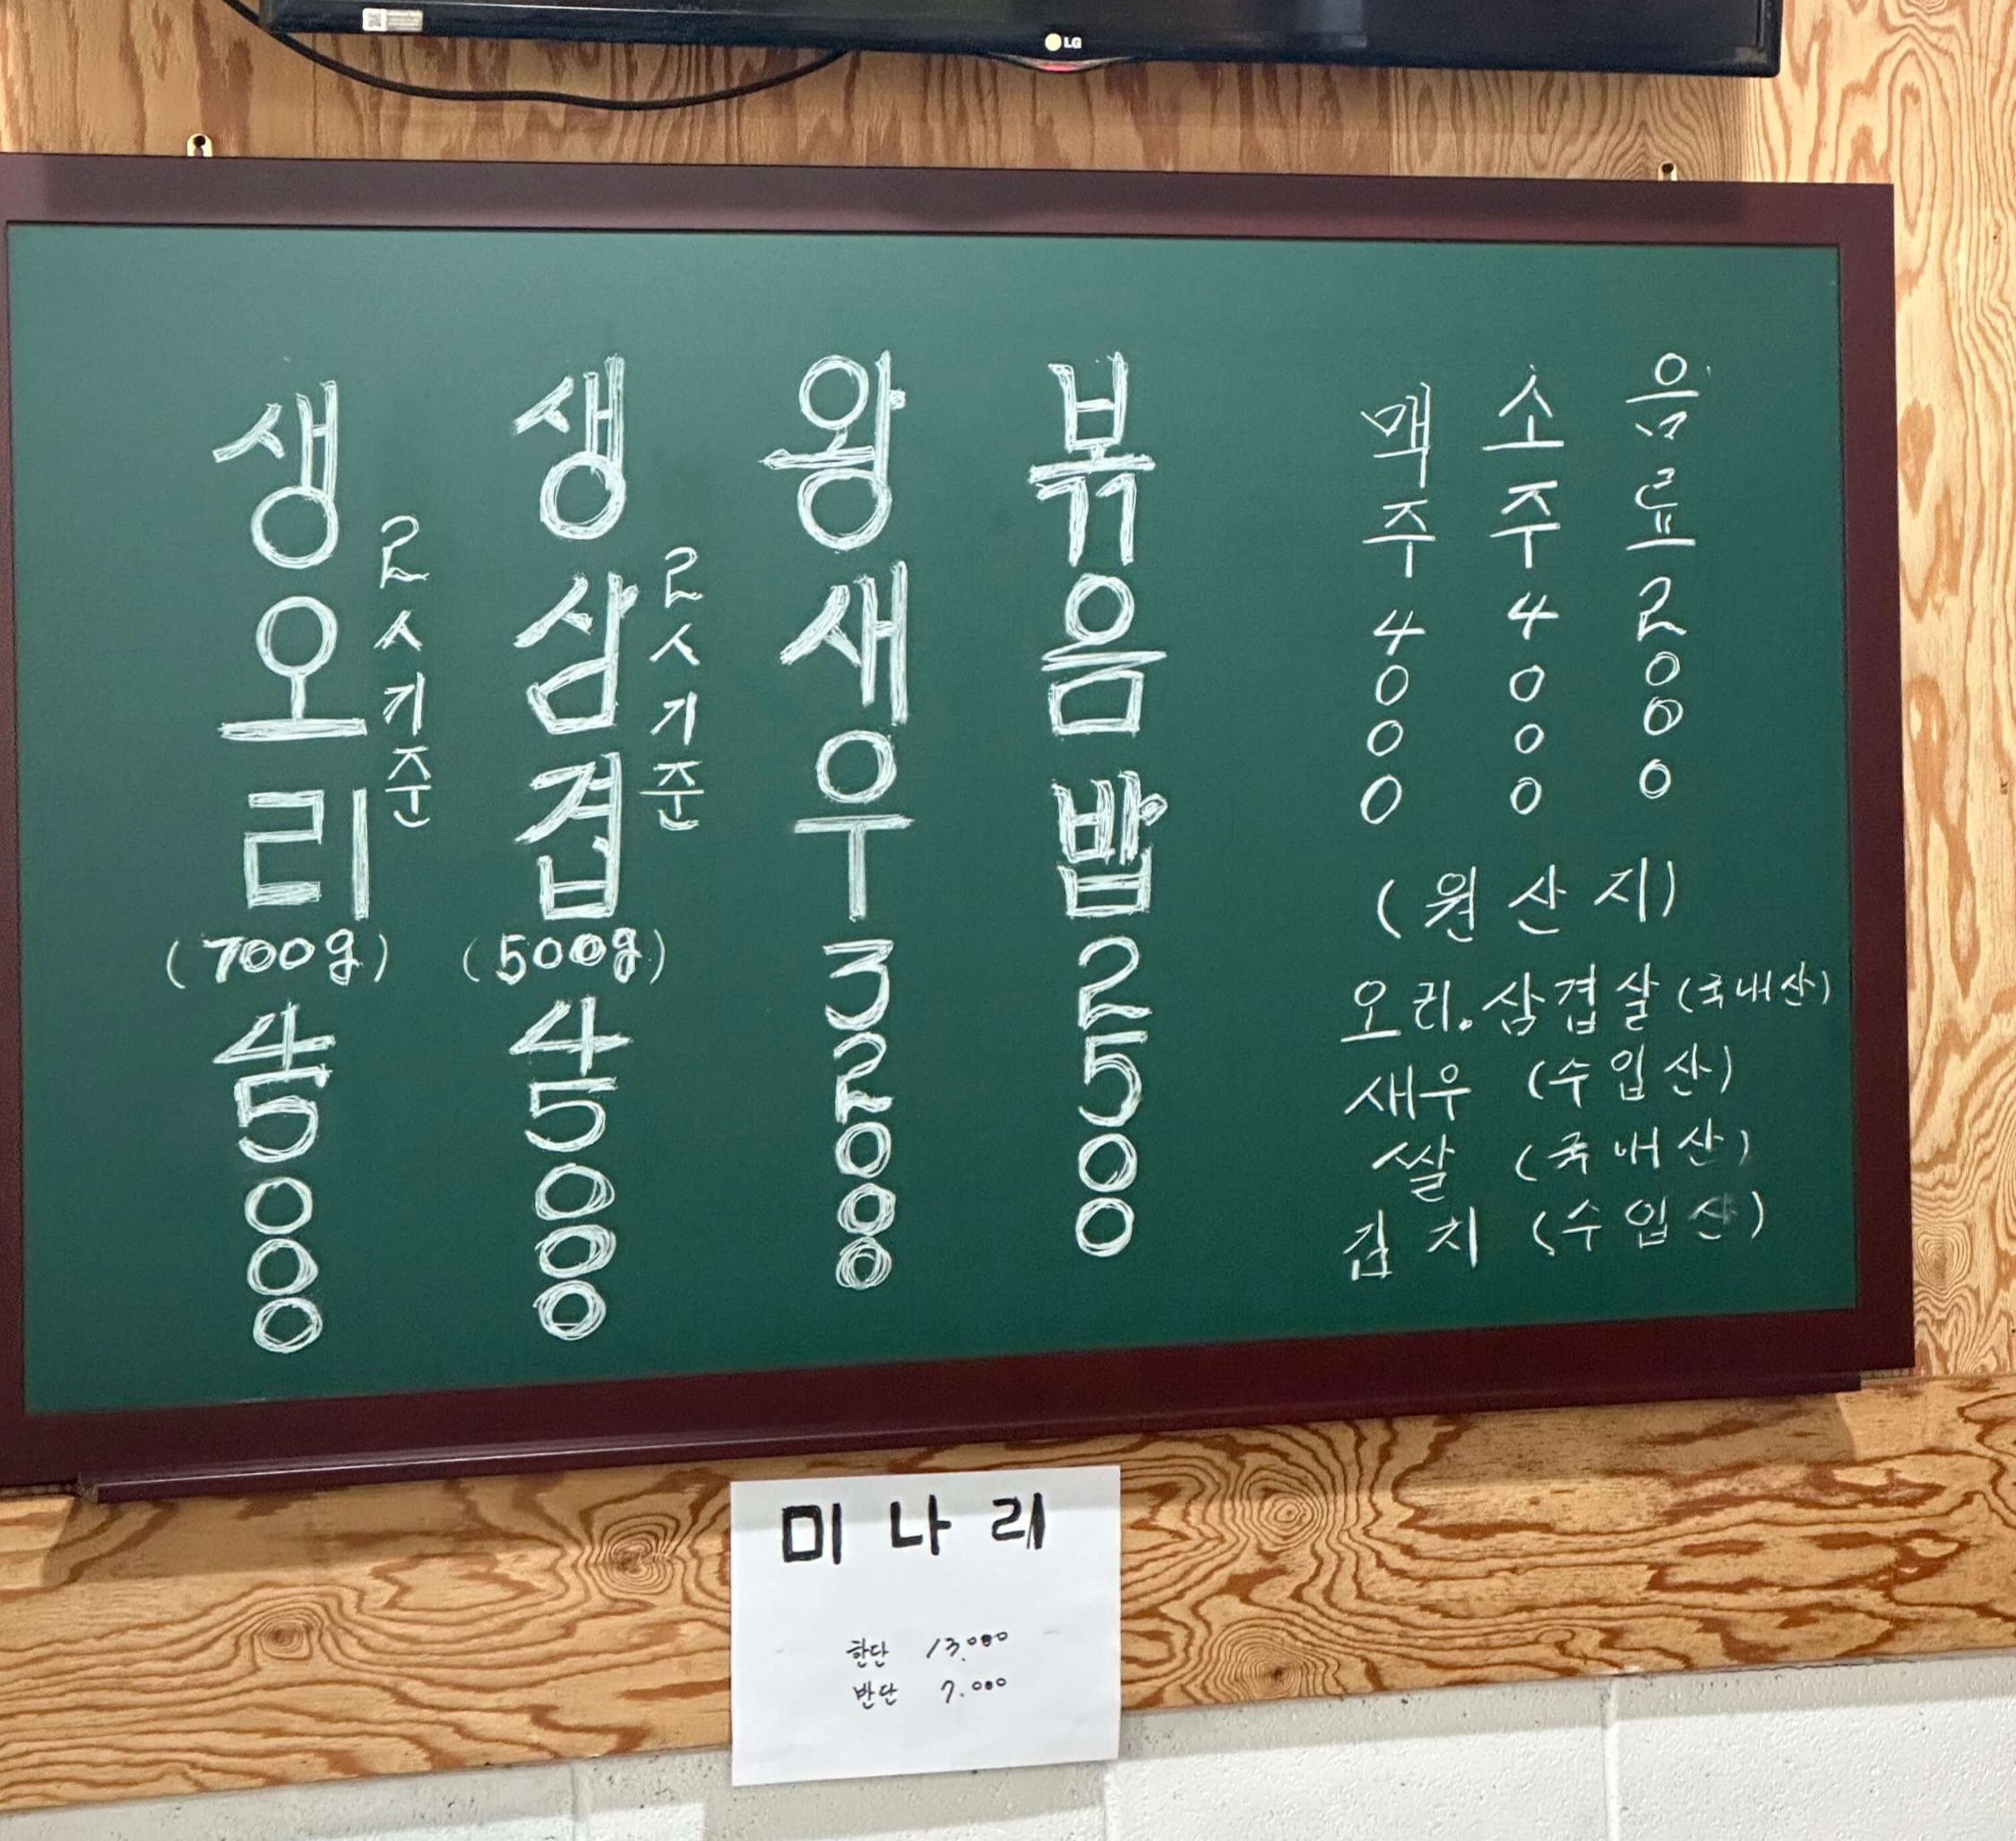 LG
생오리
(700g)
45000
오人기준
생삼겹
(500g)
45000
오人기준
왕새우
32000
볶음밥
2500
맥주 4000
소주 4000
음료 2000
(원산지)
오리.삼겹살(국내산)
새우 (수입산)
쌀 (국내산)
김치 (수입산)
미나리
한단 13.000
반단 7.000